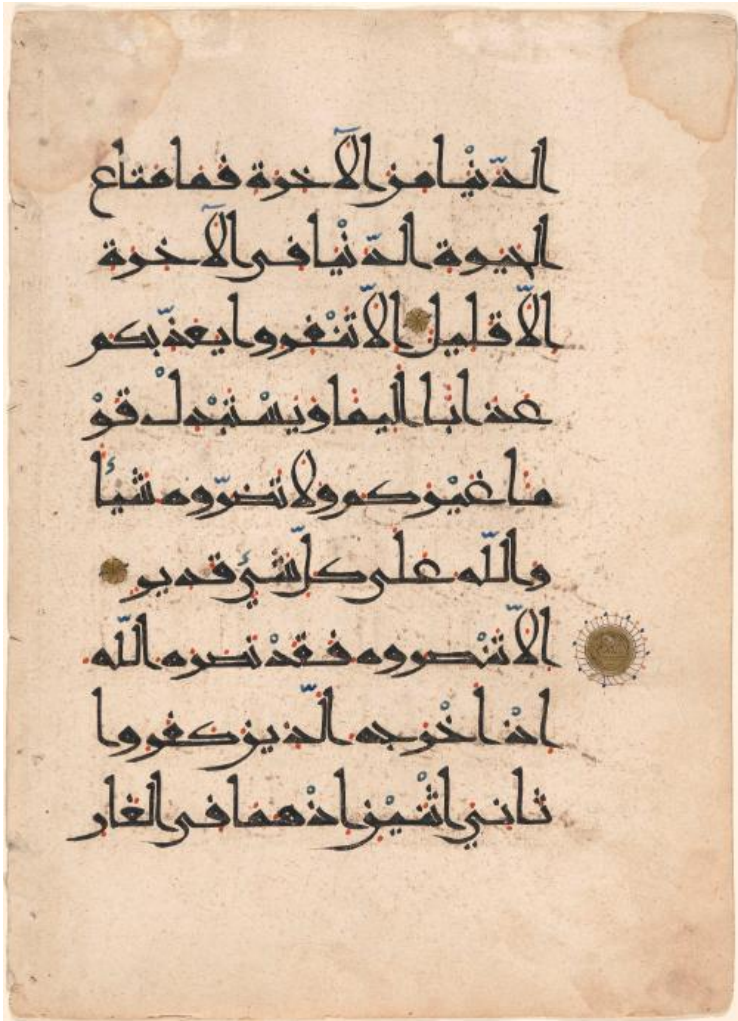 الدّنْيا من الآخرة فما متاع
الحيوة الدّنْيا فى الآخرة
الّا قليل الّا تنْفروا يعذّبكم
عذابا اليما ويسْتبْدلْ قوْ
ما غيْركم ولا تضرّوه شيْأ
واللّه على كلّ شىْء قدير
الّا تنْصروه فقدْ نصره اللّه
اذْ اخْرجه الّذين كفروا
ثاني اثْنيْن اذْ هما فى الغار